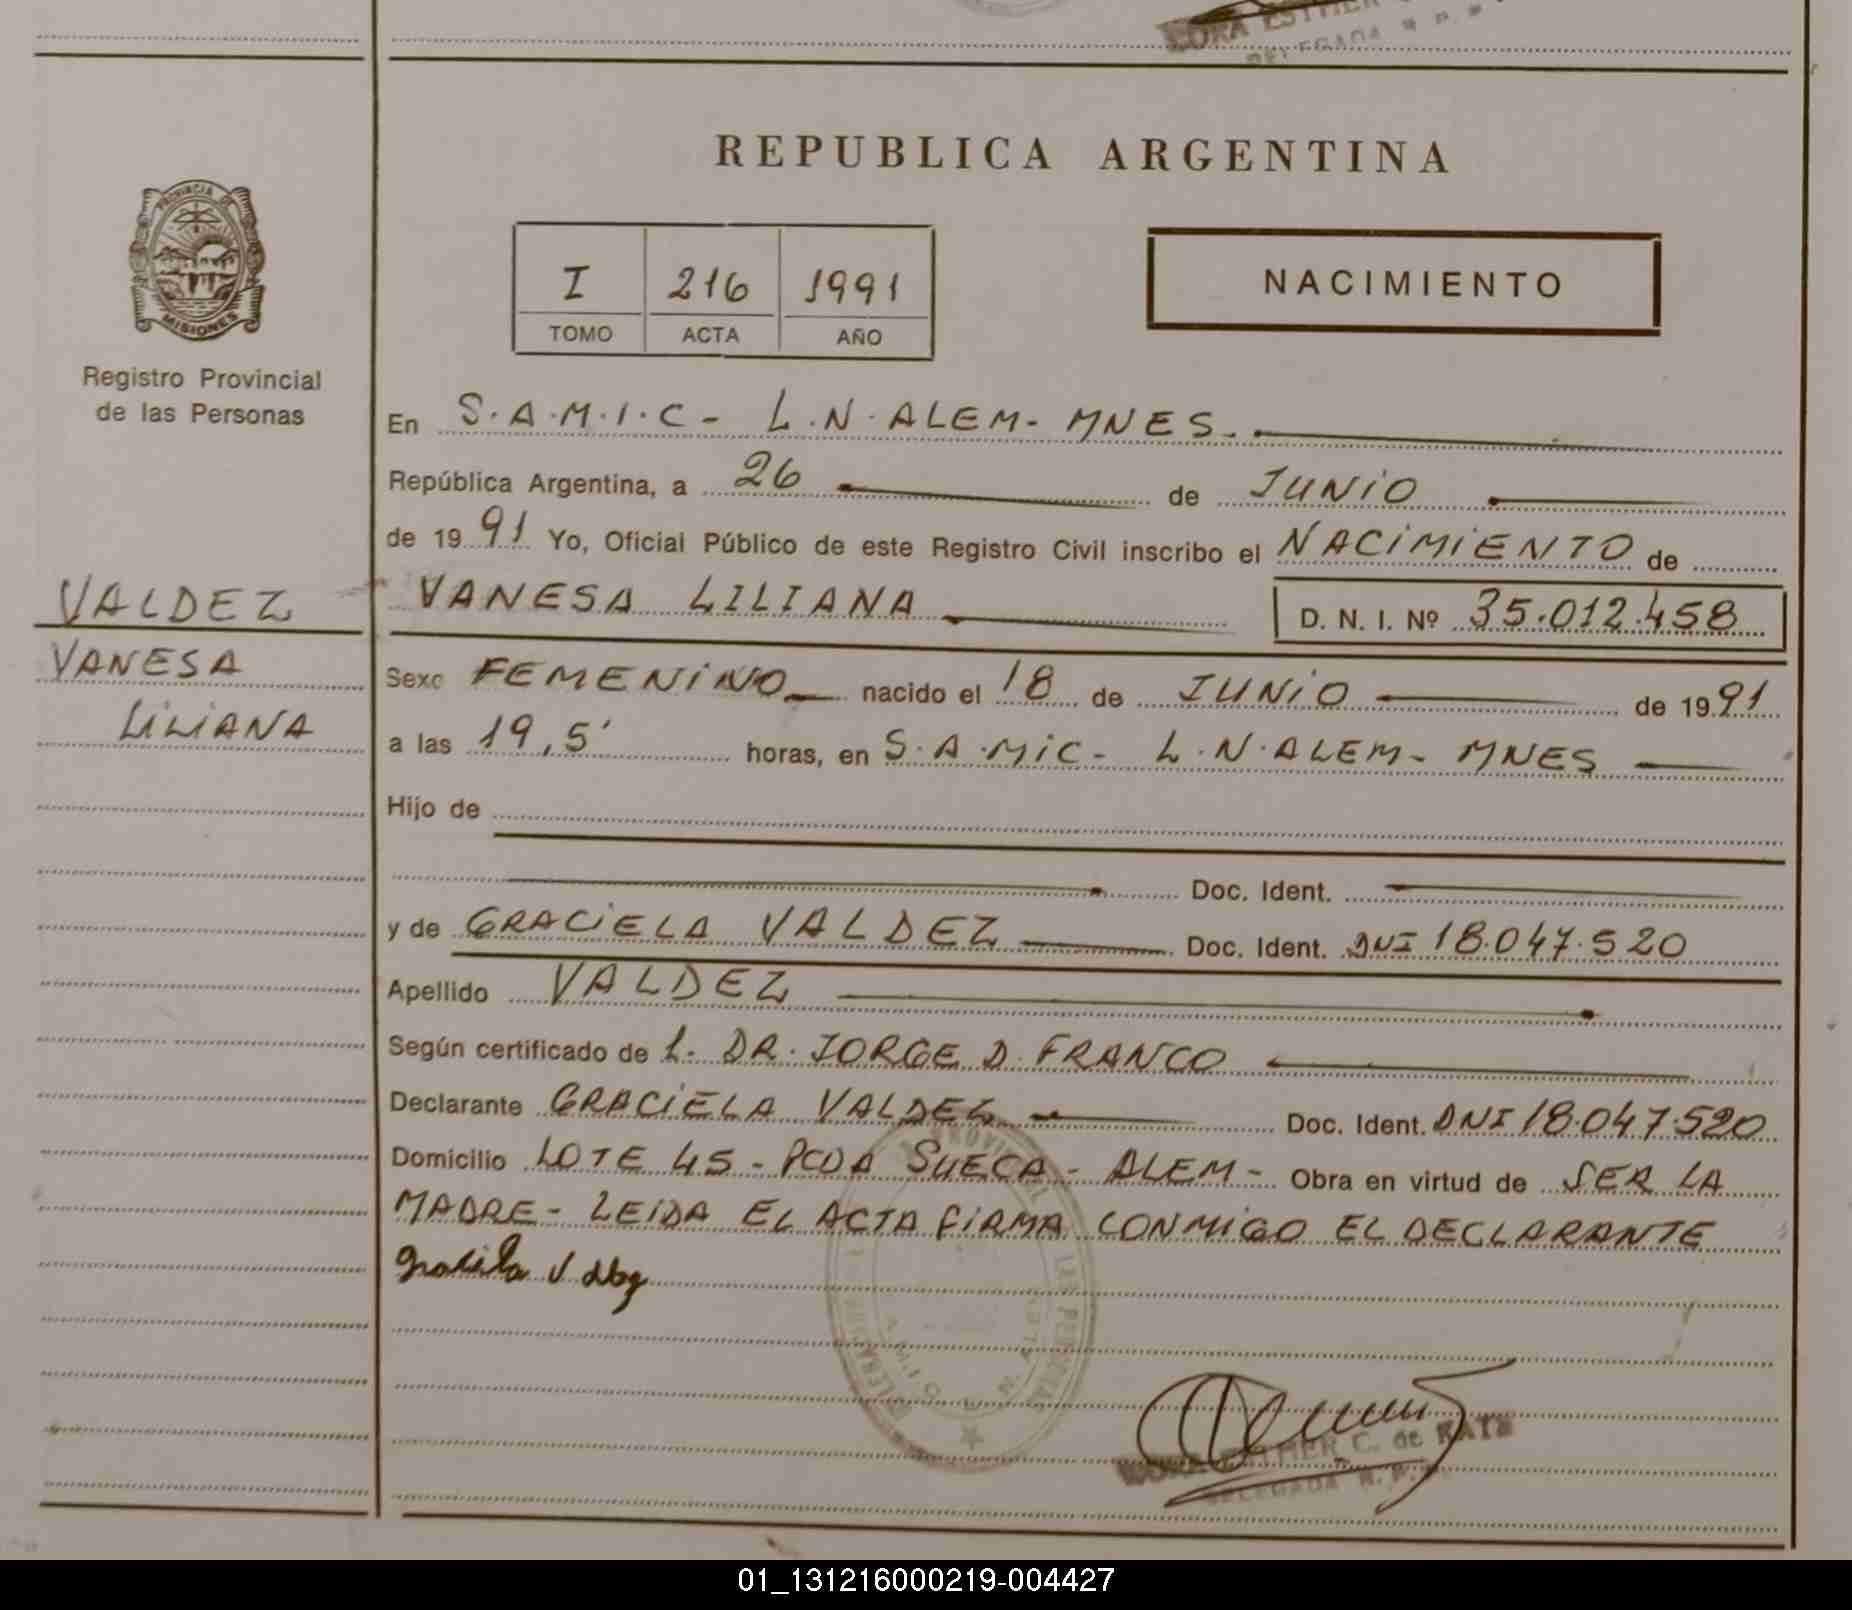 CORA ESTHER
DELEGADA R. P.
REPUBLICA ARGENTINA
PROVINCIA DE
MISIONES
Registro Provincial
de las Personas
I 216 1991
TOMO ACTA AÑO
NACIMIENTO
En S.A.M.I.C - L.N.ALEM - MNES.
República Argentina, a 26 de JUNIO
de 1991 Yo, Oficial Público de este Registro Civil inscribo el NACIMIENTO de
VALDEZ
VANESA
LILIANA
VANESA LILIANA D. N. I. Nº 35.012.458
Sexo FEMENINO nacido el 18 de JUNIO de 1991
a las 19,5' horas, en S.A.MIC - L.N.ALEM - MNES
Hijo de
Doc. Ident.
y de GRACIELA VALDEZ Doc. Ident. DNI 18.047.520
Apellido VALDEZ
Según certificado de L. DR. JORGE D. FRANCO
Declarante GRACIELA VALDEZ Doc. Ident. DNI 18.047.520
Domicilio LOTE 45 - PCDA SUECA - ALEM - Obra en virtud de SER LA
MADRE - LEIDA EL ACTA FIRMA CONMIGO EL DECLARANTE
ESTHER C. de RATE
DELEGADA R. P.
01_131216000219-004427